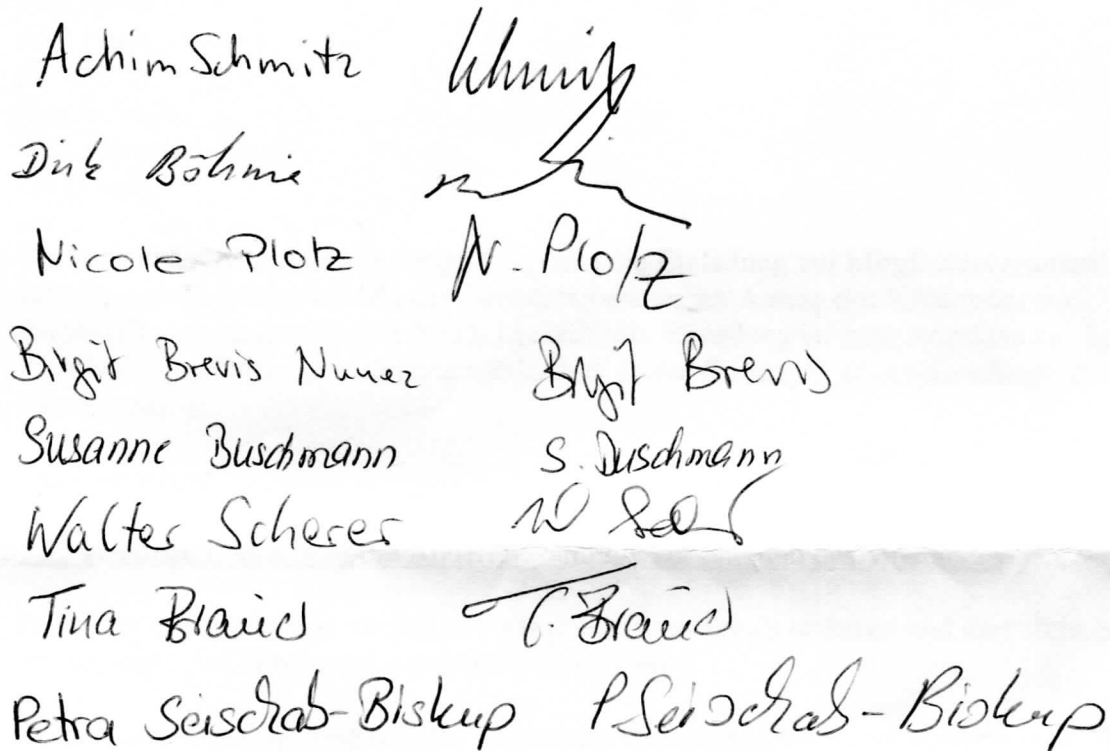 Achim Schmitz Schmitz
Dirk Böhme
Nicole Plotz N. Plotz
Birgit Brevis Nunez Birgit Brevis
Susanne Buschmann S. Buschmann
Walter Scherer W
Tina T
Petra Seischab-Biskup P Seischab-Biskup